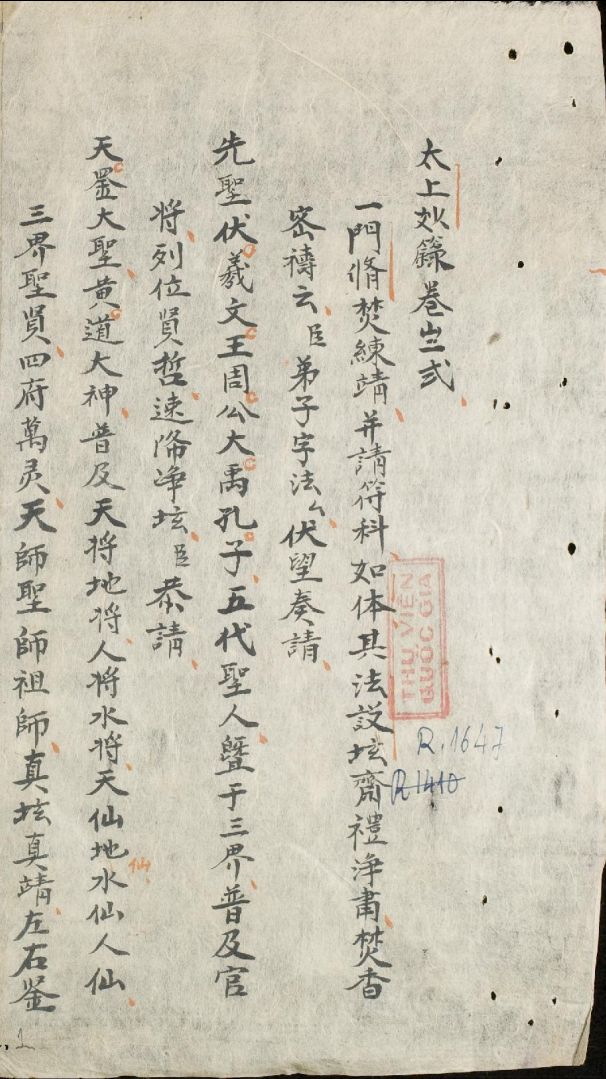 太上妙籙卷之弍
一門脩焚練靖并請符科如体其法設坛齋禮淨肅焚香
密禱云臣弟子字法厶伏望奏請
先聖伏羲文王周公大禹孔子五代聖人曁于三界普及官
將列位賢哲速降净坛臣恭請
天罡大聖黄道大神普及天将地将人将水将天仙地仙水仙人仙
三界聖賢四府萬灵天師聖師祖師真坛真靖左右鉴
THƯ VIỆN
QUỐC GIA
R.1647
R1410
1